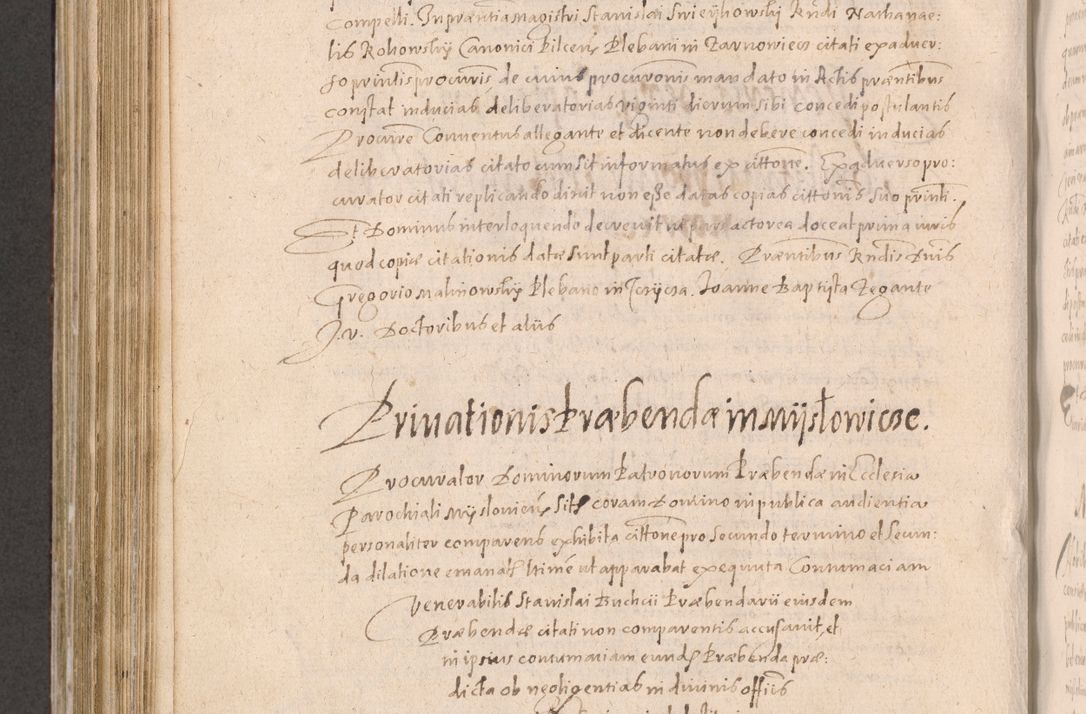 Compelli. In præsentia magistri Stanislai Swieÿkowskÿ Rndi Nathanae:
lis Rokowskÿ Canonici Pilcen Plebani in Zarnowiecz citati ex aduer:
so prindis procuris de cuius procuronis mandato in Actis præntibus
constat inducias deliberatorias viginti dierum sibi concedi postulantis
Procure Conuentus allegante et dicente non debere concedi inducias
deliberatorias citato cum sit informatus ex cittone. Ex aduerso pro:
curator citati replicando dixit non esse datas copias cittonis suo prinli.
Et Dominus interloquendo decreuit ut pars actorea doceat prima iuris
quod copiæ citationis datæ sunt parti citatæ. Præntibus Rndis Dnis
Gregorio Malinowskÿ Plebano in Iczÿcza. Ioanne Baptista Zegante
J. v. Doctoribus et aliis
Priuationis Præbendæ in Mÿsłowicze.
Procurator Dominorum Patronorum Præbendæ in Ecclesia
Parochiali Mÿslouicen sitæ coram Domino in publica audientia
personaliter comparens exhibita cittone pro secundo termino et secun:
da dilatione emanat ltime ut apparabat exequuta Contumaciam
Venerabilis Stanislai Buchcii Præbendarii eiusdem
Præbendæ citati non comparentis accusauit, et
in ipsius contumaciam eund Præbenda præ:
dicta ob negligentias in diuinis offiis